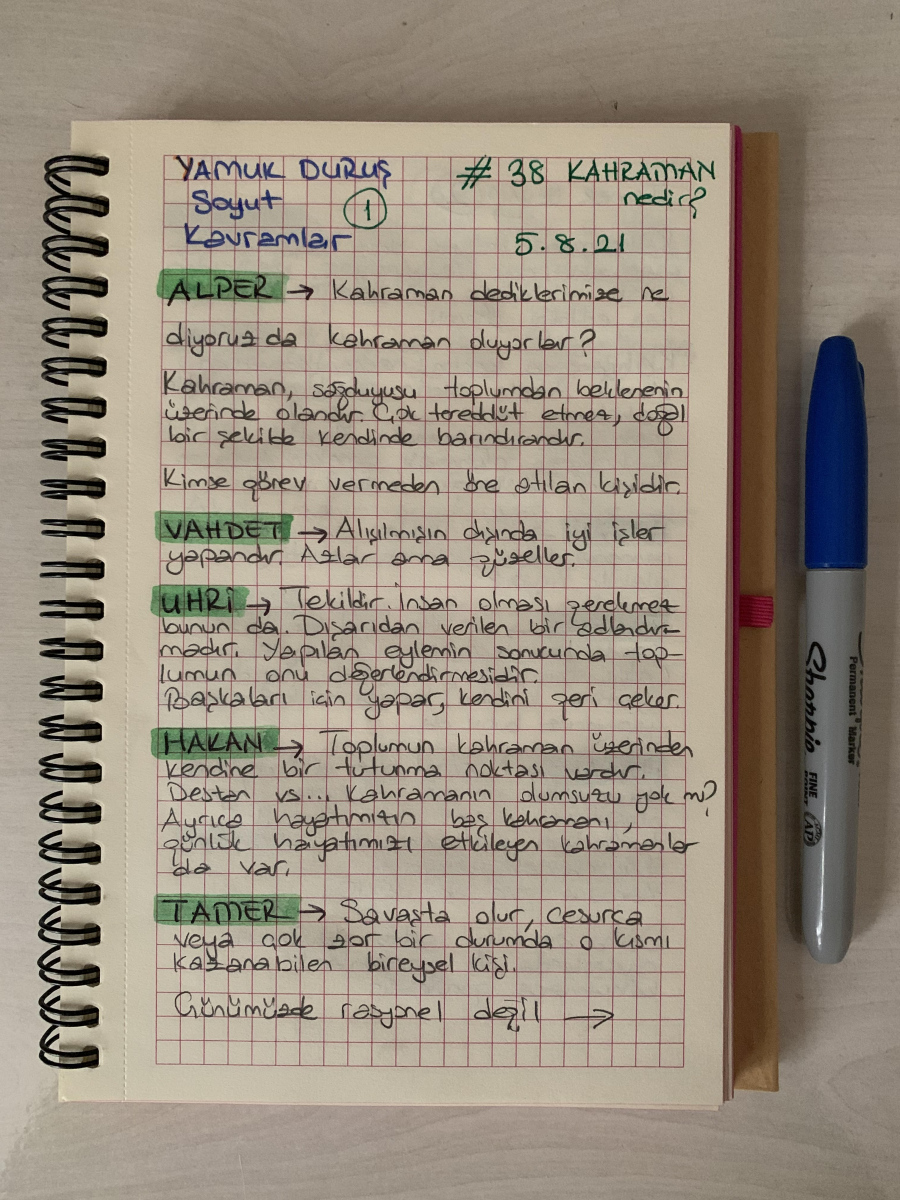 YAMUK DURUŞ
Soyut
Kavramlar
1
# 38 KAHRAMAN
nedir?
5.8.21
ALPER → Kahraman dediklerimize ne
diyoruz da kahraman oluyorlar?
Kahraman, sağduyusu toplumdan beklenenin
üzerinde olandır. Çok tereddüt etmez, doğal
bir şekilde kendinde barındırandır.
Kimse görev vermeden öne atılan kişidir.
VAHDET → Alışılmışın dışında iyi işler
yapandır. Azlar ama güzeller.
UHRİ → Tekildir. İnsan olması gerekmez
bunun da. Dışarıdan verilen bir adlandır-
madır. Yapılan eylemin sonucunda top-
lumun onu değerlendirmesidir.
Başkaları için yapar, kendini geri çeker.
HAKAN → Toplumun kahraman üzerinden
kendine bir tutunma noktası vardır.
Destan vs... Kahramanın olumsuzu yok mu?
Ayrıca hayatımızın baş kahramanı,
günlük hayatımızı etkileyen kahramanlar
da var.
TAMER → Savaşta olur, cesurca
veya çok zor bir durumda o kısmı
kazanabilen bireysel kişi.
Günümüzde rasyonel değil →
Sharpie
FINE
Permanent Marker
AP